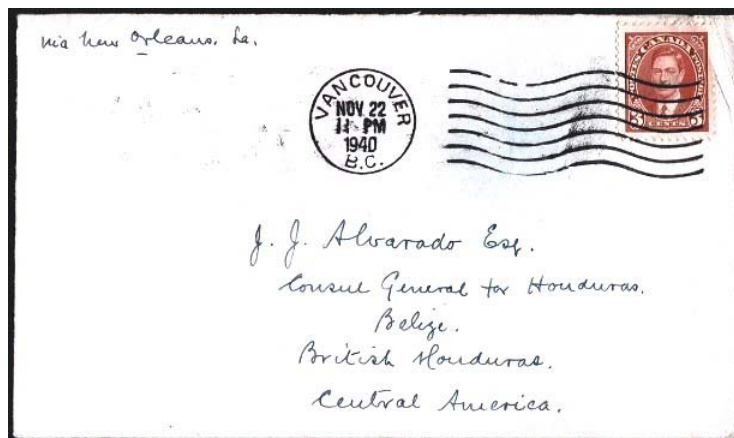 via New Orleans. La.
VANCOUVER
NOV 22
11 PM
1940
B.C.
POSTES CANADA POSTAGE
3 CENTS 3
J. J. Alvarado Esq.
Consul General for Honduras.
Belize.
British Honduras.
Central America.